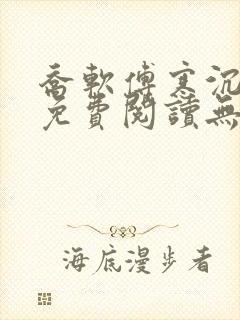 喬軟傅寒沉
免費閱讀無
海底漫步者